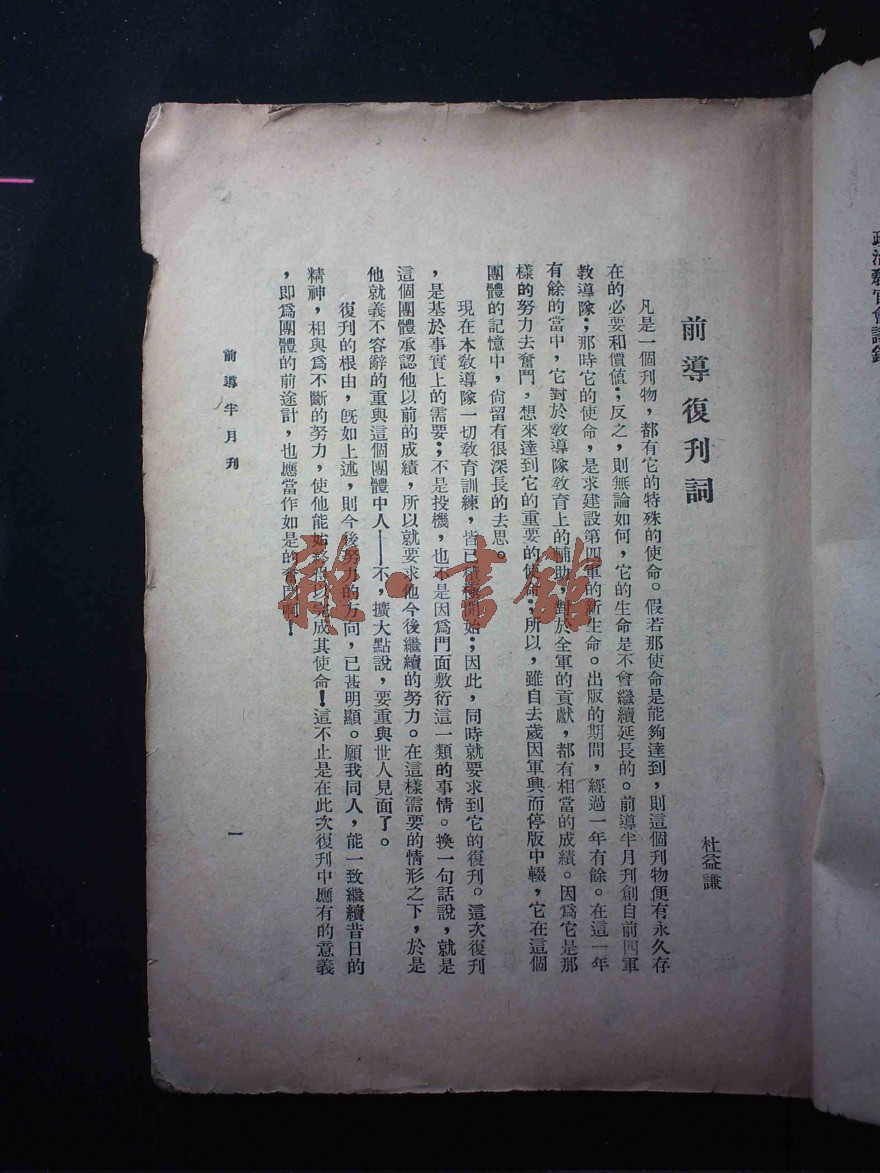 前導復刊詞
杜益謙
凡是一個刊物，都有它的特殊的使命。假若那使命是能夠達到，則這個刊物便有永久存
在的必要和價値；反之，則無論如何，它的生命是不會繼續延長的。前導半月刊創自前四軍
敎導隊；那時它的使命，是求建設第四軍的新生命。出版的期間，經過一年有餘。在這一年
有餘的當中，它對於敎導隊敎育上的輔助，對於全軍的貢獻，都有相當的成績。因爲它是那
樣的努力去奮鬥，想來達到它的重要的使命；所以，雖自去歲因軍興而停版中輟，它在這個
團體的記憶中，尙留有很深長的去思。
現在本敎導隊一切敎育訓練，皆已開始；因此，同時就要求到它的復刊。這次復刊
，是基於事實上的需要；不是投機，也不是因爲門面敷衍這一類的事情。換一句話說，就是
這個團體承認他以前的成績，所以就要求他今後繼續的努力。在這樣需要的情形之下，於是
他就義不容辭的重與這個團體中人——不，擴大點說，要重與世人見面了。
復刊的根由，旣如上述，則今後努力的方向，已甚明顯。願我同人，能一致繼續昔日的
精神，相與爲不斷的努力，使他能始終得以完成其使命！這不止是在此次復刊中應有的意義
，卽爲團體的前途計，也應當作如是的奮鬥啊！
前導半月刊
一
雜·書館
政治敎官會議錄